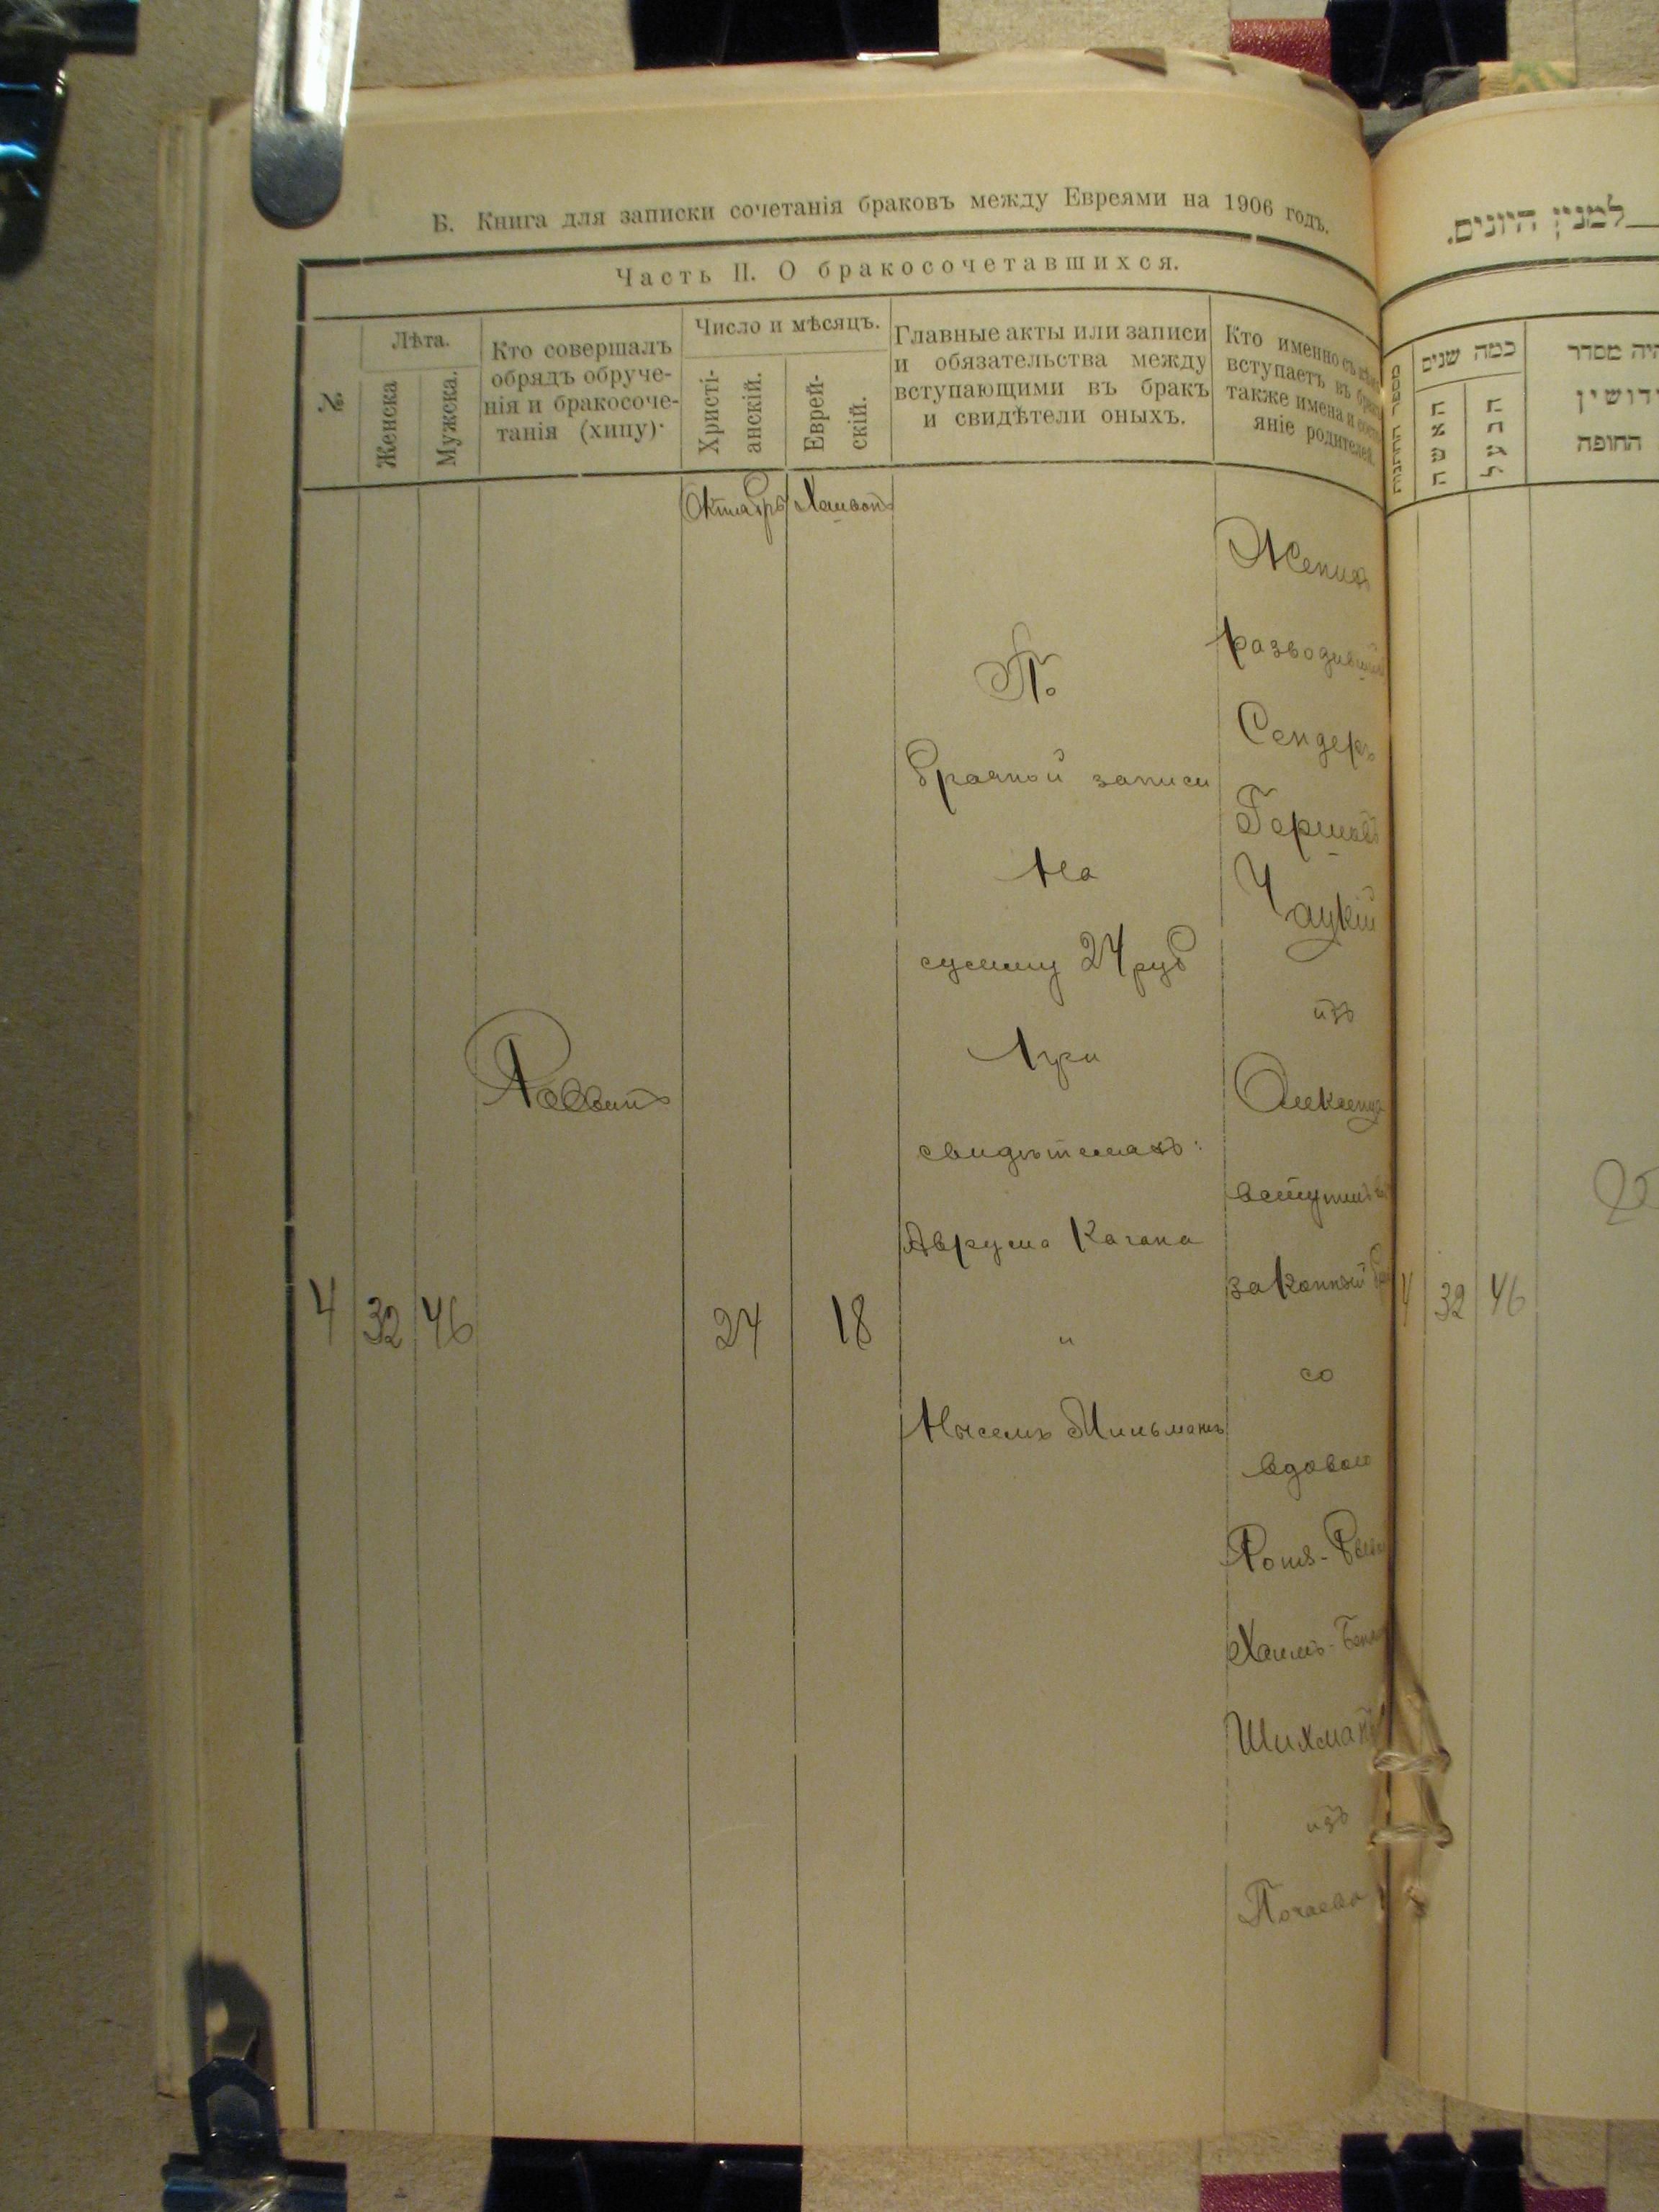 Б. Книга для записки сочетанія браковъ между Евреями на 1906 годъ.
Часть II. О бракосочетавшихся.
№
Лѣта.
Женска
Мужска.
Кто совершалъ
обрядъ обруче-
нія и бракосоче-
танія (хипу).
Число и мѣсяцъ.
Христі-
анскій.
Еврей-
скій.
Главные акты или записи
и обязательства между
вступающими въ бракъ
и свидѣтели оныхъ.
Кто именно съ кѣмъ
вступаетъ въ бракъ
также имена и состо-
яніе родителей.
Октябрь
Хешвонъ
4
32
46
Раввинъ
24
18
По
брачной записи
на
сумму 24 руб
при
свидѣтеляхъ:
Аврума Кагана
и
Нысемъ Мильманъ
Женихъ
разводивший
Сендеръ
Гершовъ
Чацкій
изъ
вступилъ въ
законный
со
вдовою
Хаимъ-
Шихманъ
изъ
Почаева
למנין היונים.
מספר החתונות
כמה שנים
האשה
הבעל
היה מסדר
החופה
4
32
46